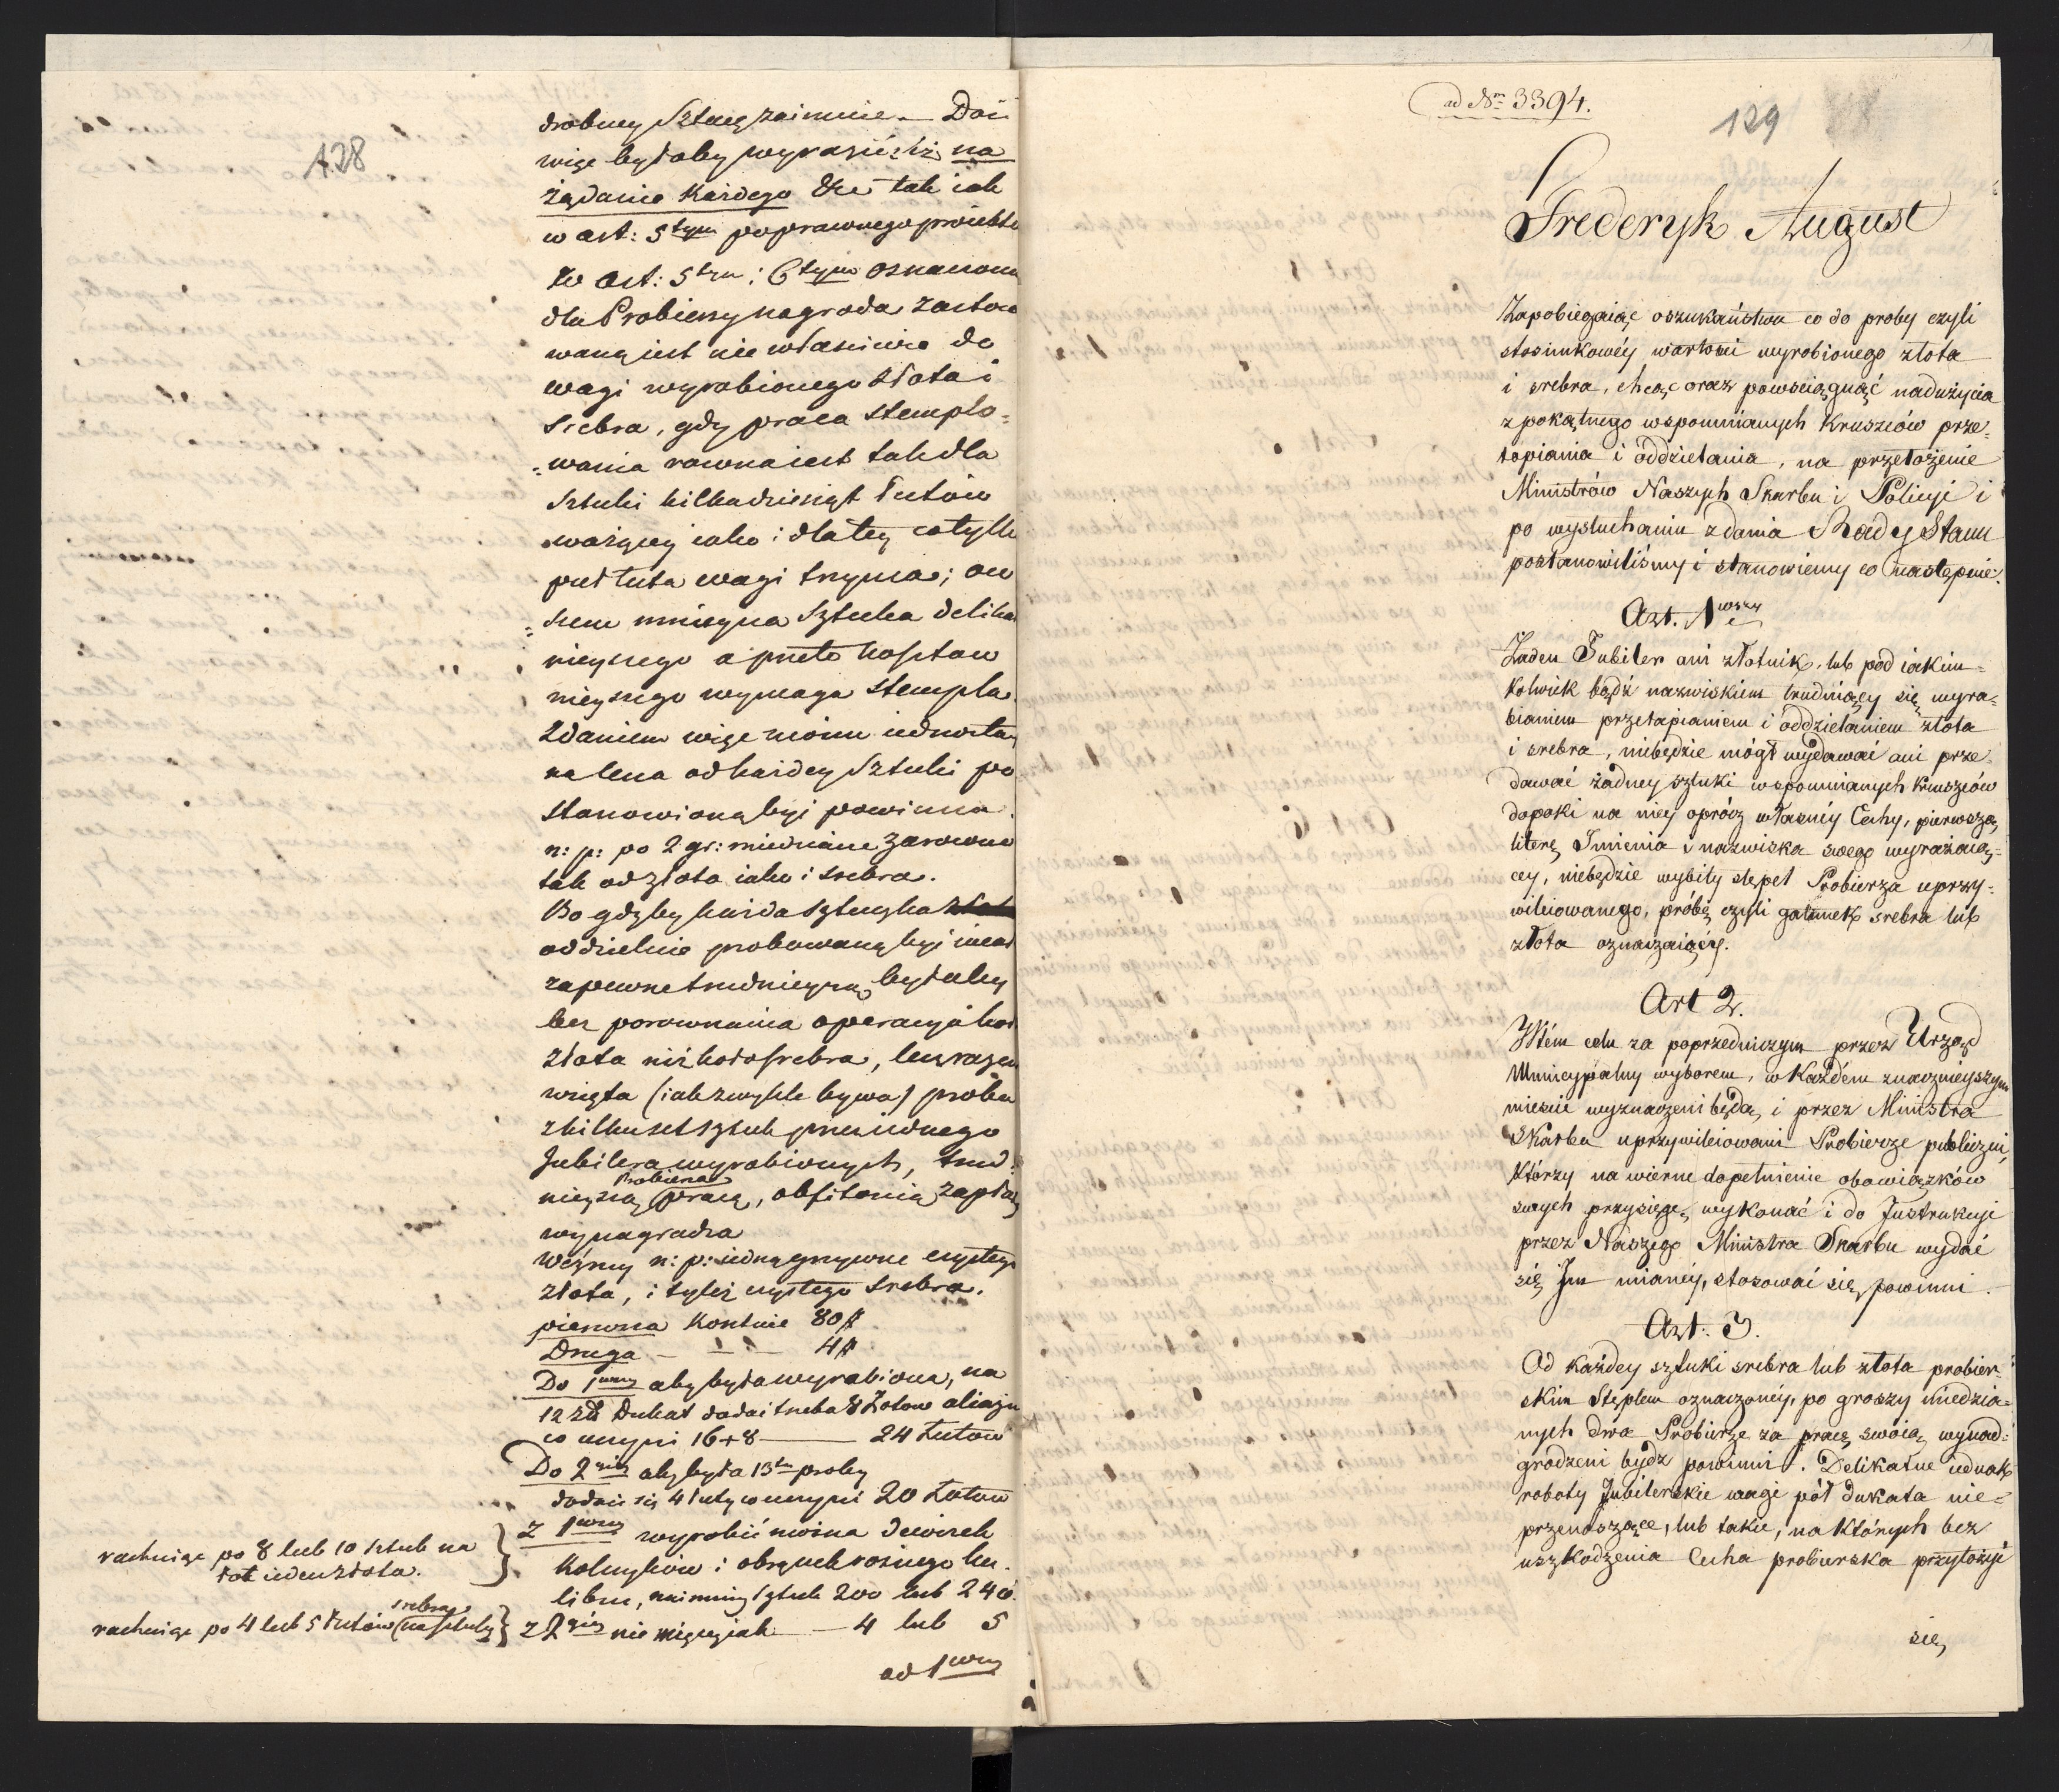 128
drobney Sztucę zaimuie. — Dość
więc byłoby wyrazić iż na
żądanie każdego &c tak iak
w art: 5tym poprawnego proiektu
W art: 5tym i 6tym oznaczona
dla Probierzy nagroda zastoso
waną iest nie właściwie do
wagi wyrobionego złota i
srebra, gdy praca stemplo=
=wania rowna iest tak dla
Sztuki kilkadziesiąt łutów
ważącey iako i dla tey co tylko
puł łuta wagi trzyma; ow
=szem mnieysza Sztuka delikat
nieyszego a przeto kosztow
nieyszego wymaga stempla.
Zdaniem więc moim iednosta
na cena od każdey Sztuki po
stanowioną być powinna.
n: p: po 2 gr: miedziane zarowno
tak od złota iako i srebra.
Bo gdyby każda sztuczka
oddzielnie probowaną być miała
zapewne trudnieyszą byłaby
bez porownania operacya koło
złota niż koło srebra, lecz razem
wzięta (iak zwykle bywa) proba
z kilkuset sztuk przez iednego
Jubilera wyrobionych, trud
nieyszą Probierza pracę, obfitszą zapłatą
wynagradza
Weźmy n: p: iedną grzywnę czystego
złota, i tyleż czystego srebra.
pierwsza Kosztuie 80 #
Druga — — — 4 #
Do 1wszey aby była wyrobiona, na
12 Dukat dodać trzeba 8 Łotow aliażu
co uczyni 16+8 — 24 Łutow
Do 2giey aby była 13ta proby
dodaie się 4 łuty co uczyni 20 Łutow
rachuiąc po 8 lub 10 sztuk na
łót ieden złota.
z 1wszey wyrobić można dewizek
kolczyków i obrączek rożnego ka
libru, naimniey sztuk 200 lub 240.
rachuiąc po 4 lub 5 łutów srebra na sztukę
z 2giey nie więcey iak — 4 lub 5
od 1wszey
ad Nrm 3394.
129
Frederyk August
Zapobiegaiąc oszukaństwu co do proby czyli
stosunkowéy wartości wyrobionego złota
i srebra, chcąc oraz powściągnąć nadużycia
z pokątnego wspomnianych Kruszców prze=
topiania i oddzielania, na przełożenie
Ministrów Naszych Skarbu i Policyi i
po wysłuchaniu zdania Rady Stanu
postanowiliśmy i stanowiemy co następuie.
Art. 1wszy
Żaden Jubiler ani złotnik, lub pod iakim=
kolwiek bądź nazwiskiem trudniący się wyra=
bianiem przetapianiem i oddzielaniem złota
i srebra, niebędzie mógł wydawać ani prze=
dawać żadney sztuki wspomnianych Kruszców
dopoki na niey oprócz własnéy Cechy, pierwszą
literę Imienia i nazwiska swego wyrażaią=
cey, niebędzie wybity stępel Probierza uprzy=
wileiowanego, próbę czyli gatunek srebra lub
złota oznaczaiący.
Art 2.
W tém celu za poprzedniczym przez Urząd
Municypalny wyborem, w Każdém znacznieyszym
mieście wyznaczeni będą, i przez Ministra
Skarbu uprzywileiowani Probierze publiczni,
Którzy na wierne dopełnienie obowiązków
swych przysięgę wykonać i do Instrukcyi
przez Naszego Ministra Skarbu wydać
się Im mianéy, stosować się powinni.
Art: 3.
Od Każdey sztuki srebra lub złota probier=
skim Stęplem oznaczonéy, po groszy miedzia=
nych dwa Probierze za pracę swoią wynad=
grodzeni bydź powinni. Delikatne iednak
roboty Jubilerskie wagi pół dukata nie=
przenoszące, lub takie, na Których bez
uszkodzenia Cecha probierska przyłożyć
się